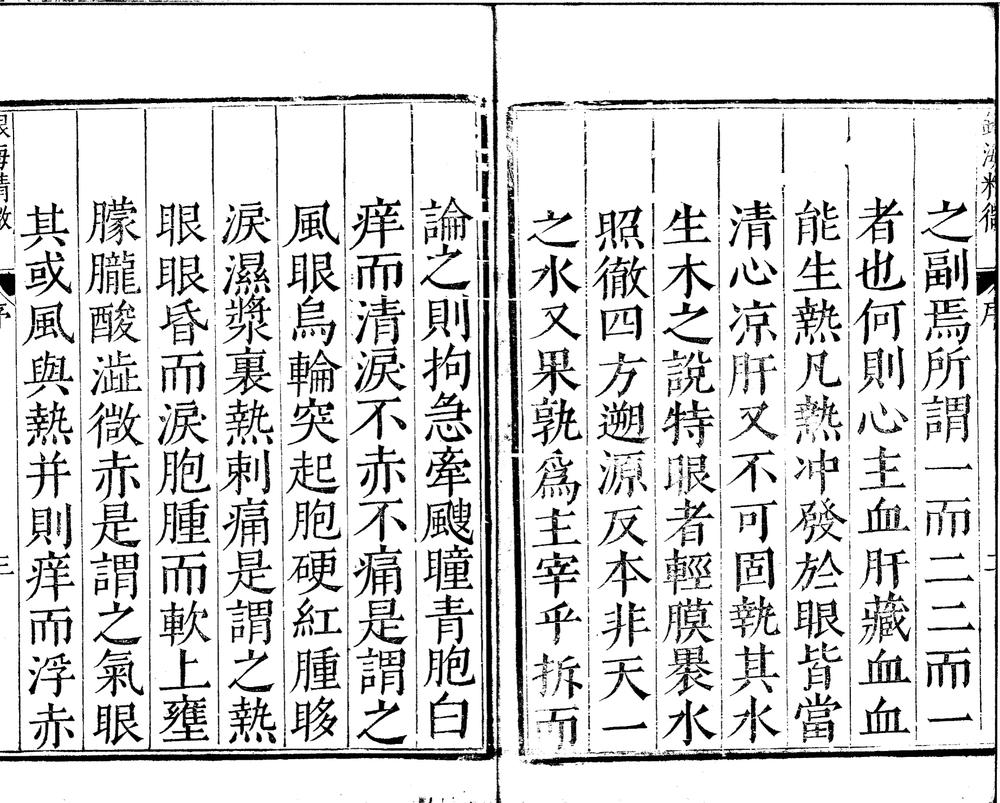 銀海精微
序
二
之副焉所謂一而二二而一
者也何則心主血肝藏血血
能生熱凡熱冲發於眼皆當
清心凉肝又不可固執其水
生木之說特眼者輕膜褁水
照徹四方遡源反本非天一
之水又果孰爲主宰乎拆而
論之則拘急牽颼瞳青胞白
痒而清淚不赤不痛是謂之
風眼烏輪突起胞硬紅腫眵
淚濕漿裏熱剌痛是謂之熱
眼眼昏而淚胞腫而軟上壅
朦朧酸澁微赤是謂之氣眼
其或風與熱并則痒而浮赤
銀海精微
序
三